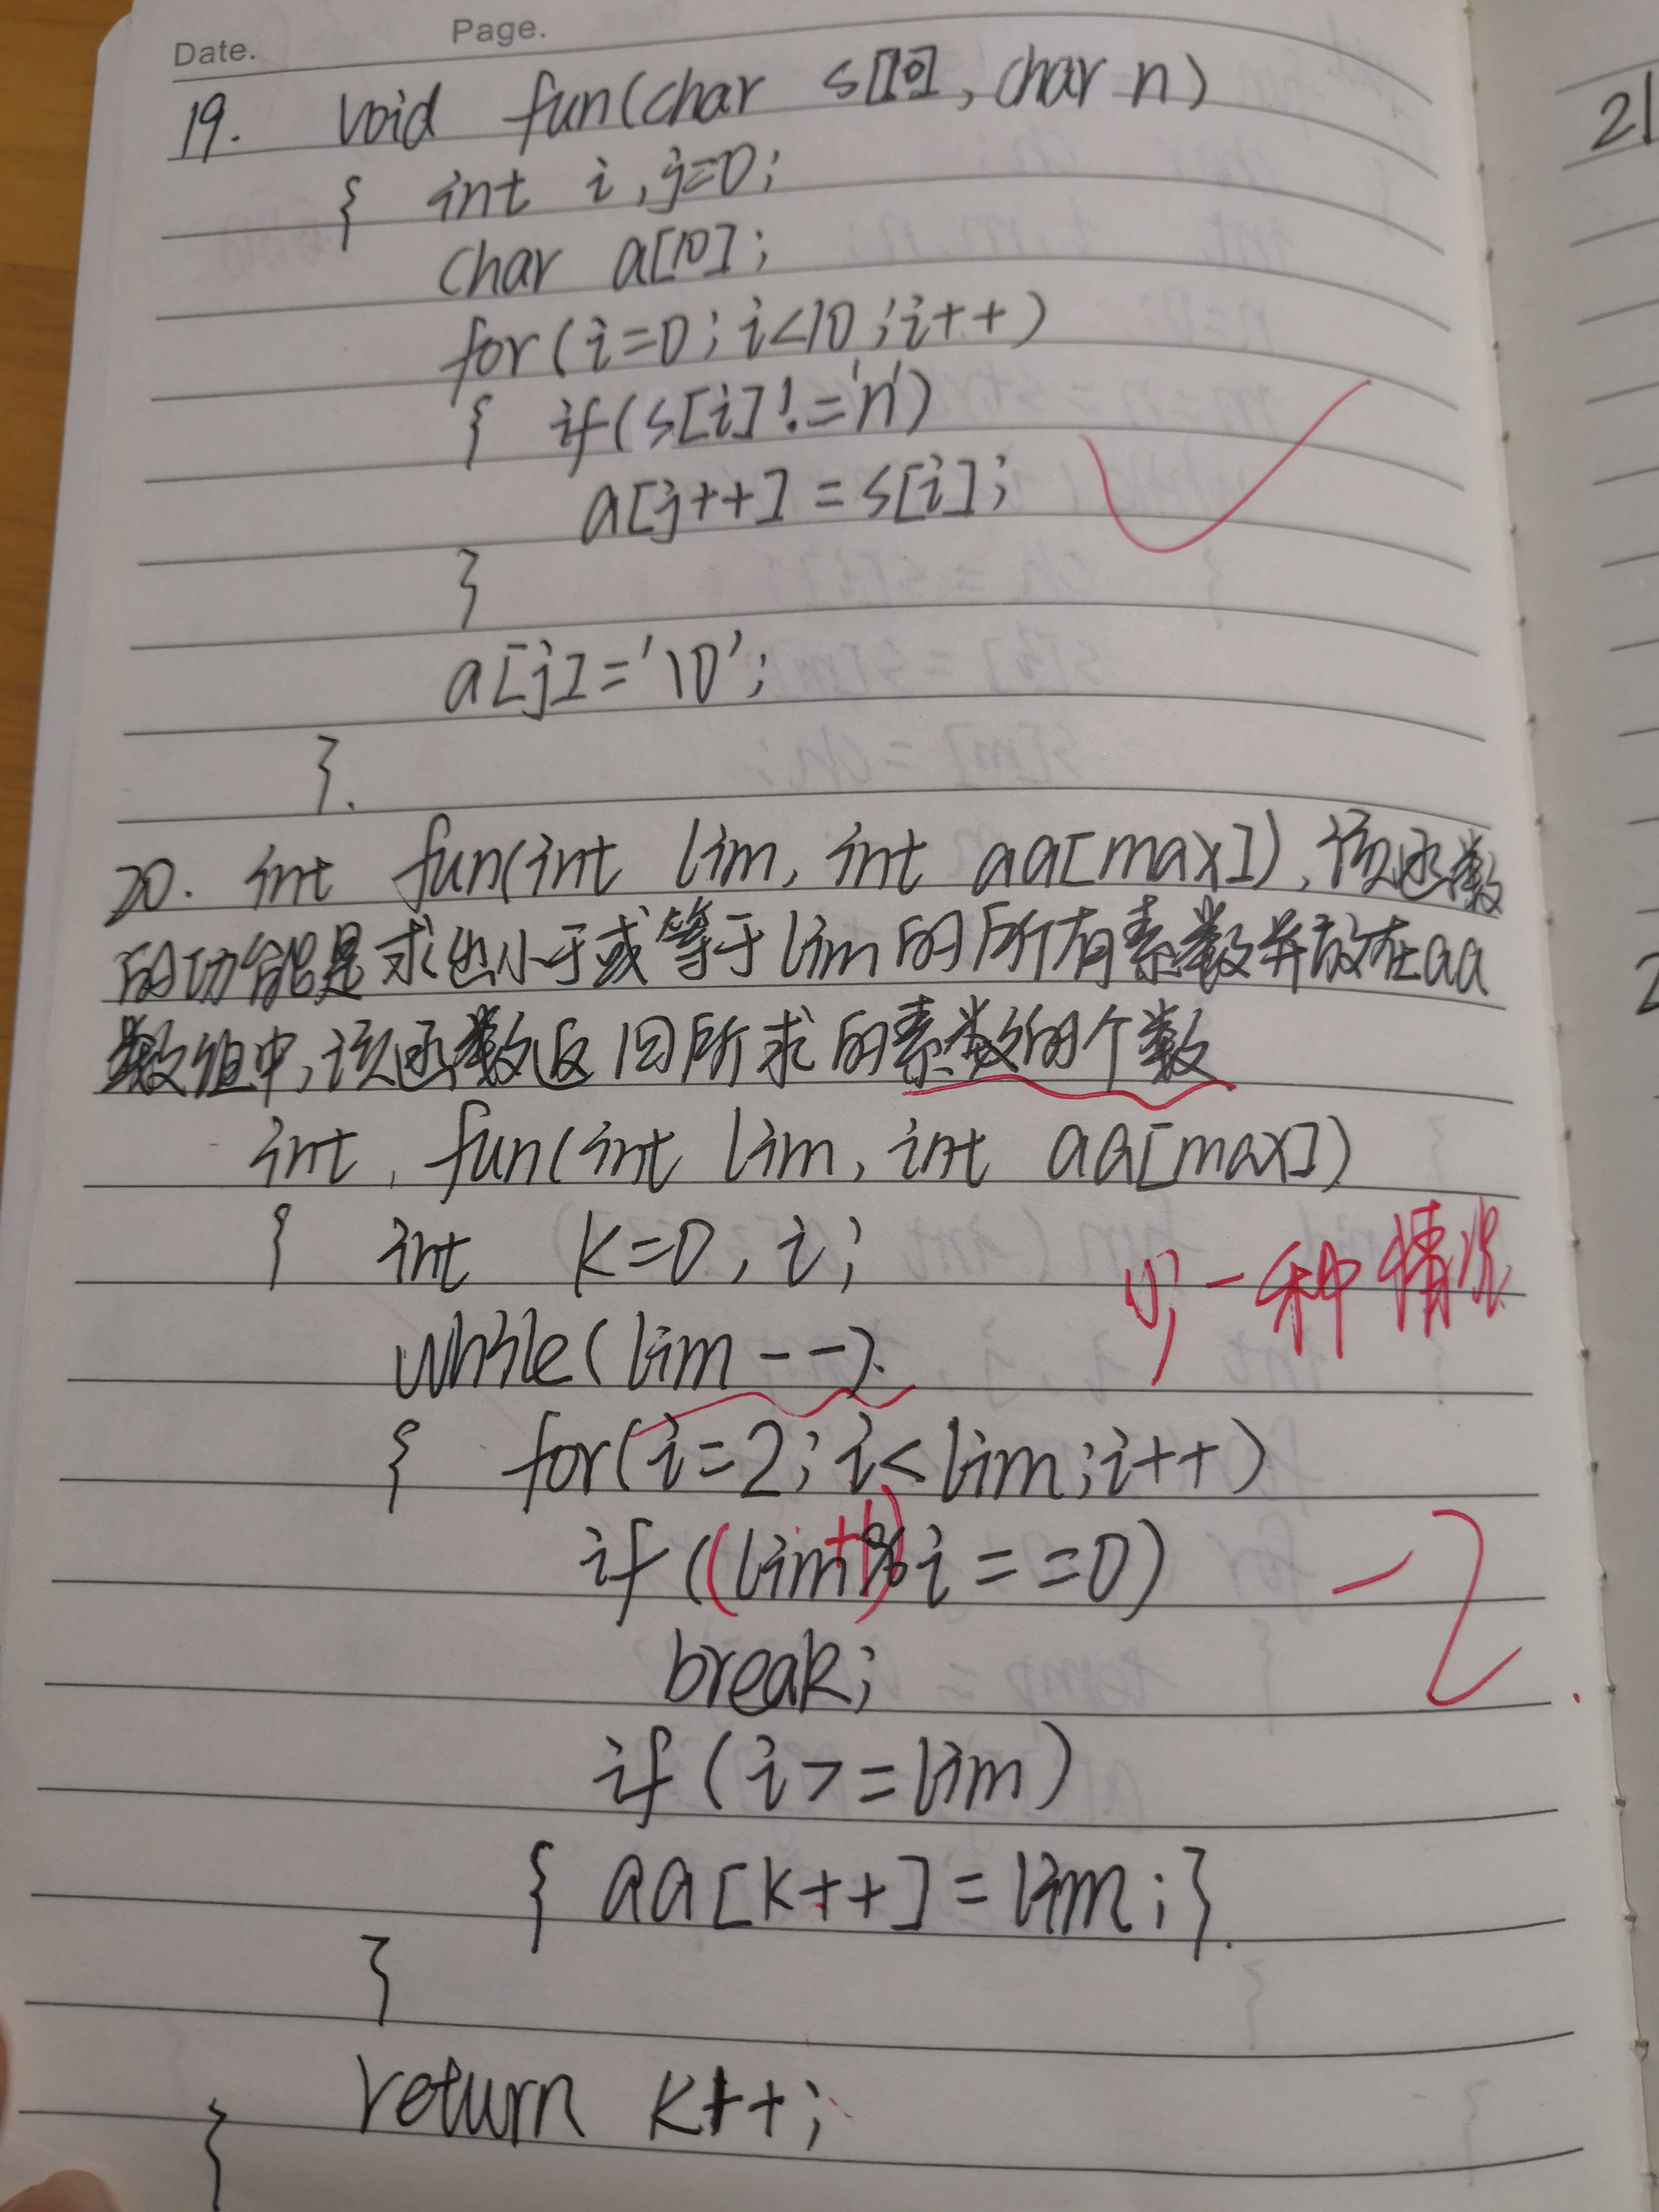 Date.
Page.
19. void fun(char s[10], char n)
{ int i, j=0;
char a[10];
for(i=0; i<10; i++)
{ if(s[i]!='n')
a[j++]=s[i];
}
a[j]='\0';
}.
20. int fun(int lim, int aa[max]), 该函数
的功能是求出小于或等于lim的所有素数并放在aa
数组中,该函数返回所求的素数的个数
int fun(int lim, int aa[max])
{ int k=0, i;
少一种情况
while(lim--)
{ for(i=2; i<lim; i++)
if((lim+1)%i==0)
-2
break;
if(i>=lim)
{ aa[k++]=lim;}
}
return k++;
}
21
2